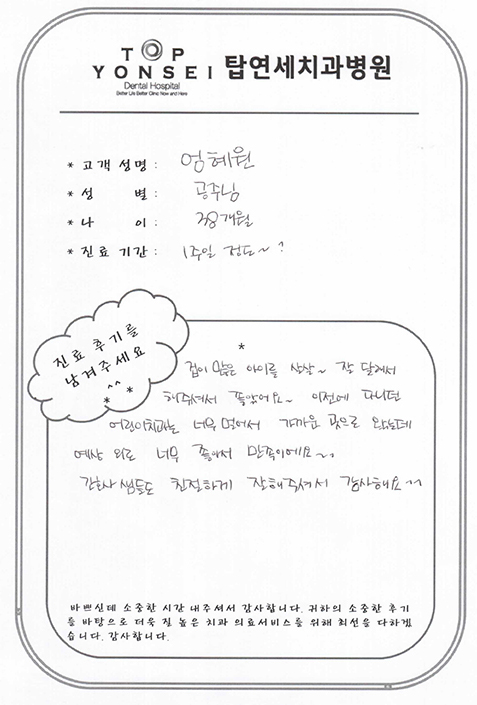 TOP
YONSEI 탑연세치과병원
Dental Hospital
Better Life Better Clinic Now and Here
* 고객 성명 : 엄혜원
* 성 별 : 공주님
* 나 이 : 38개월
* 진료 기간 : 1주일 정도~ ?
진료 후기를
남겨주세요
^^
* *
*
겁이 많은 아이를 살살~ 잘 달래서
해주셔서 좋았어요~ 이전에 다니던
어린이치과는 너무 멀어서 가까운 곳으로 왔는데
예상 외로 너무 좋아서 만족이에요~
간호사 쌤들도 친절하게 잘해주셔서 감사해요^^
바쁘신데 소중한 시간 내주셔서 감사합니다. 귀하의 소중한 후기
를 바탕으로 더욱 질 높은 치과 의료서비스를 위해 최선을 다하겠
습니다. 감사합니다.